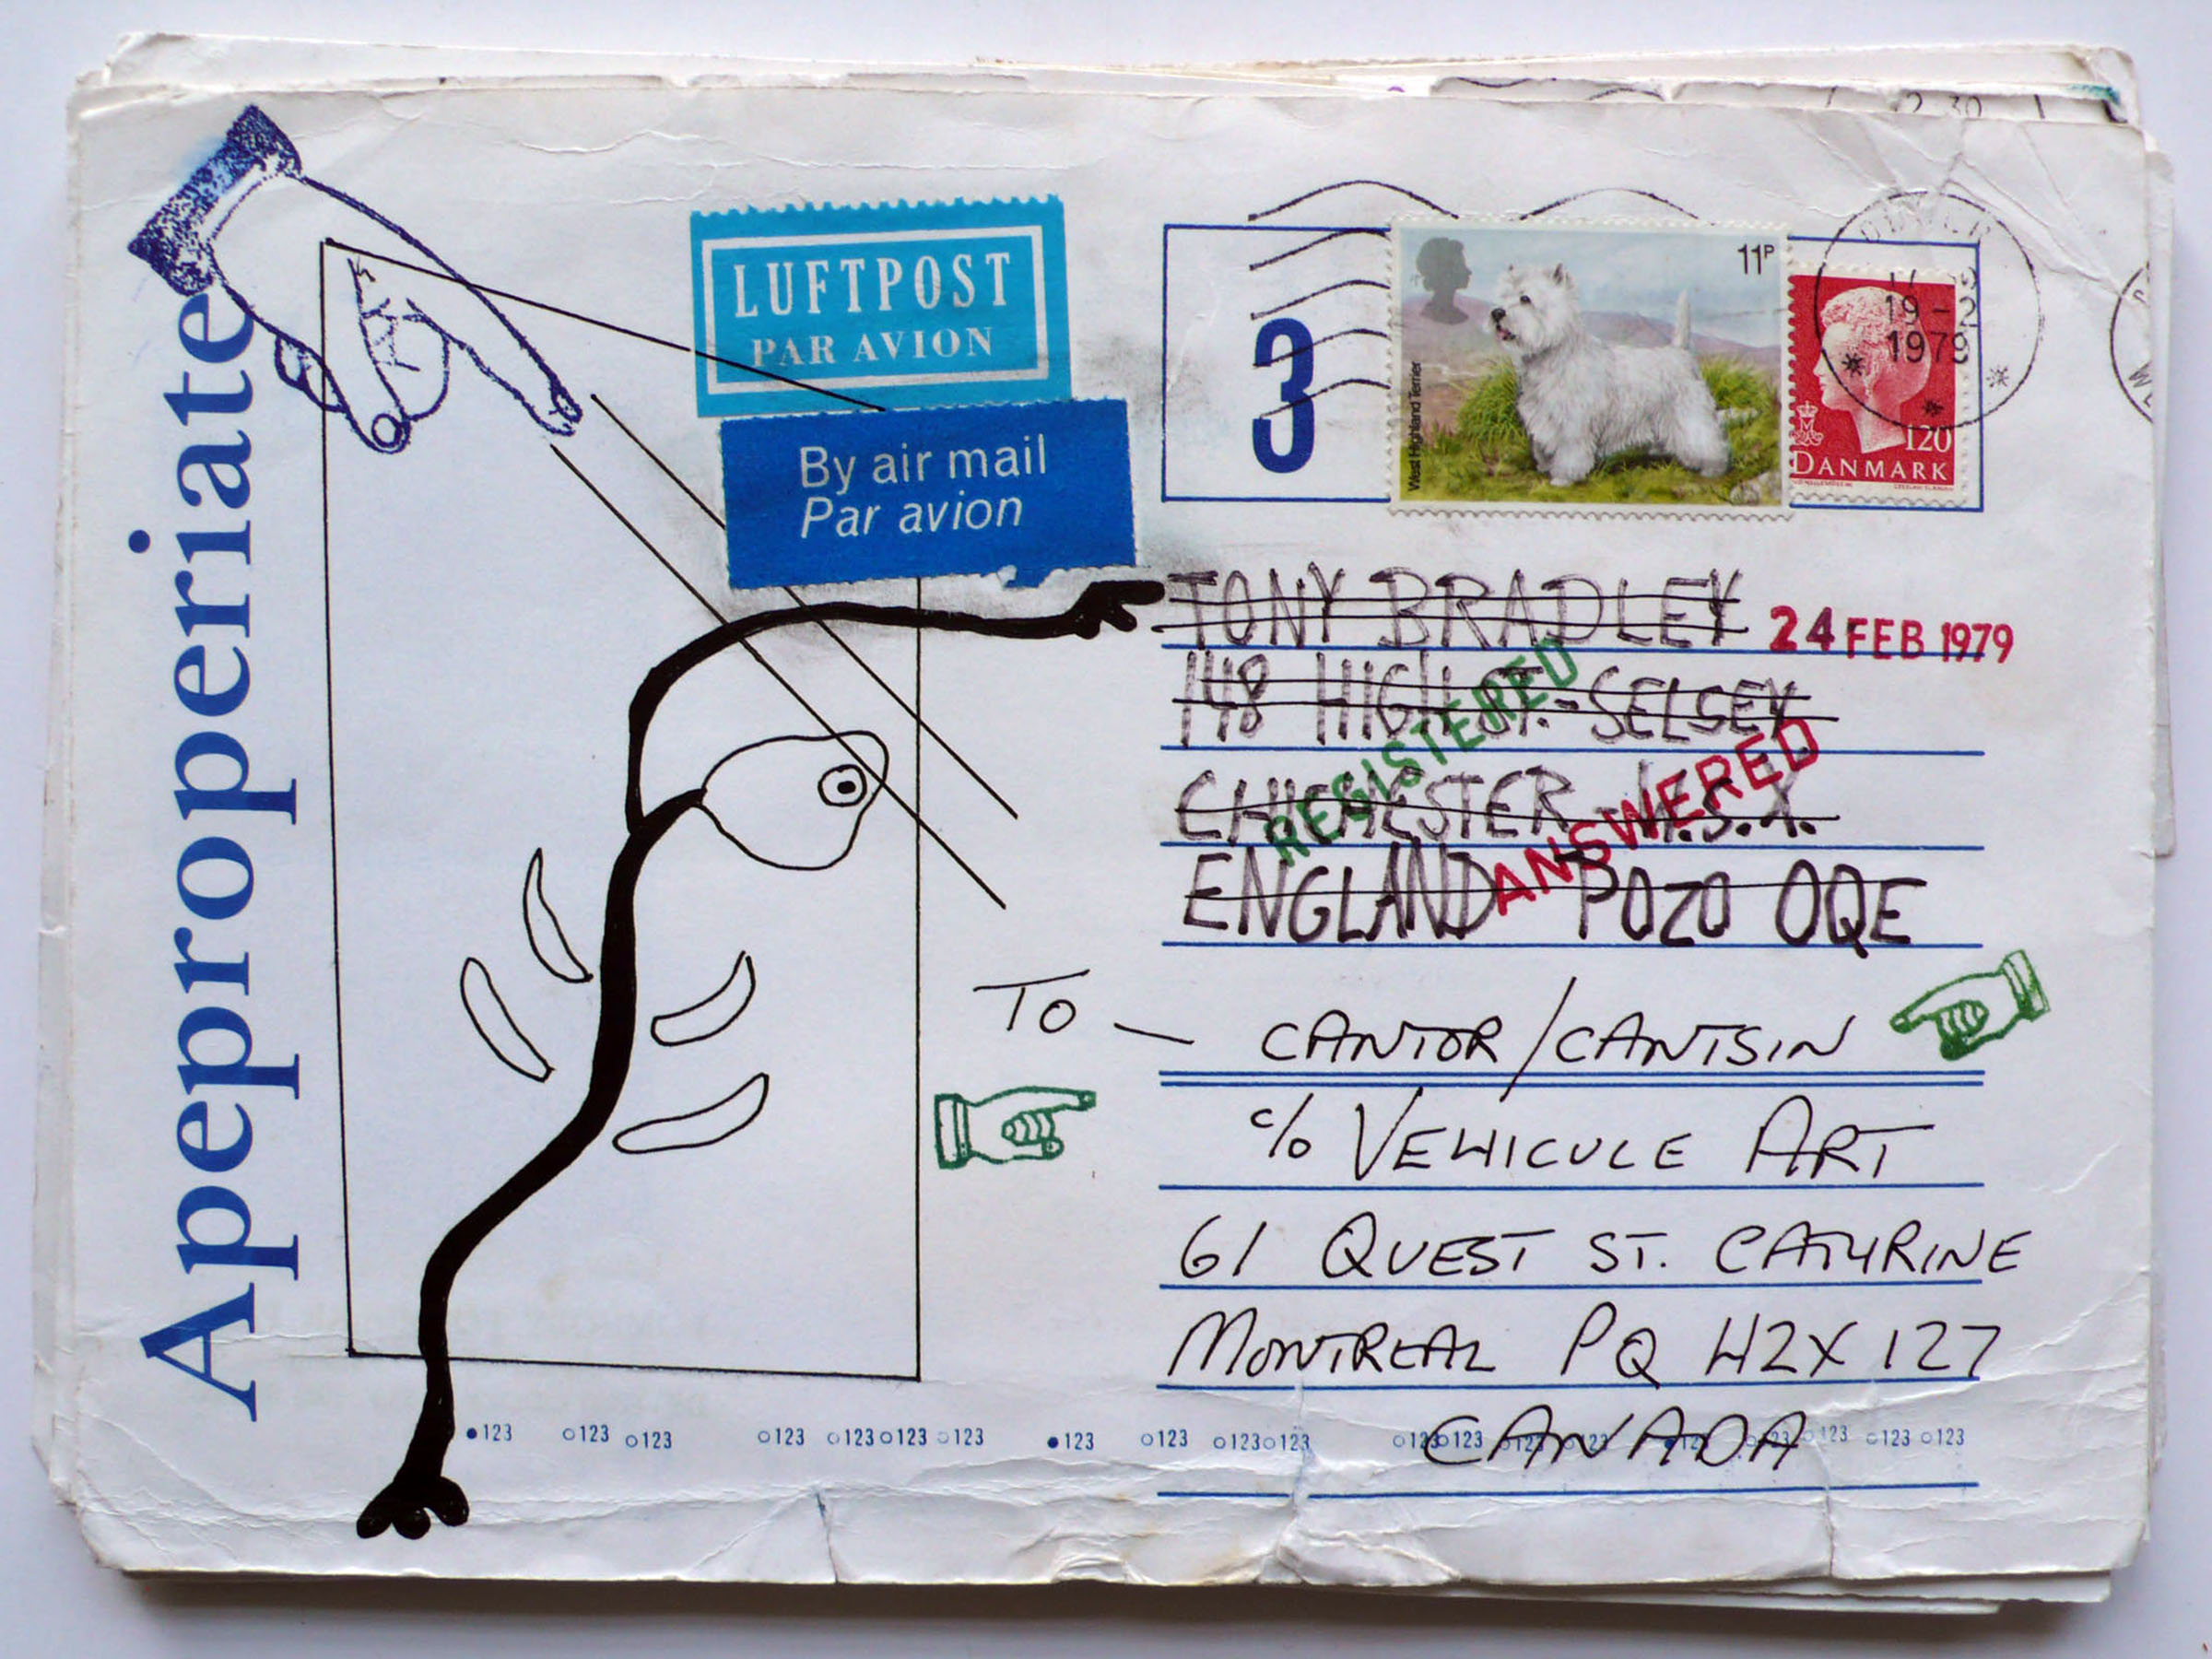 Apeproperiate
LUFTPOST
PAR AVION
By air mail
Par avion
3
11P
West Highland Terrier
19-2
1979
120
DANMARK
TONY BRADLEY
24 FEB 1979
148 HIGH ST.-SELSEY
REGISTERED
CHICHESTER W.S.X.
ANSWERED
ENGLAND POZO OQE
TO — CANTOR/CANTSIN
c/o VEHICULE ART
61 QUEST ST. CATHRINE
MONTREAL PQ H2X 1Z7
CANADA
123 123 123 123 123 123 123 123 123 123 123 123 123 123 123 123 123 123 123 123
2 30